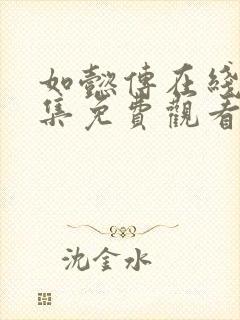 如懿傳在綫
集免費觀看
沈金水